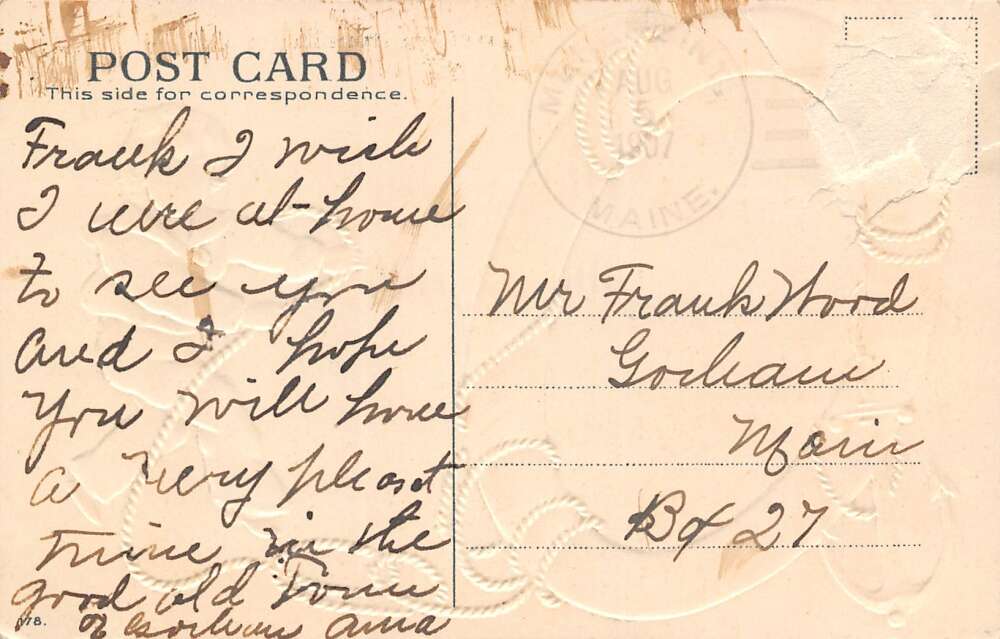 POST CARD
This side for correspondence.
Frank I wish
I were at-home
to see you
and I hope
you will have
a very pleast
time in the
good old Town
of Gorham Anna
178.
AUG
5
1907
MAINE.
Mr Frank Wood
Gorham
Main
Bx 27